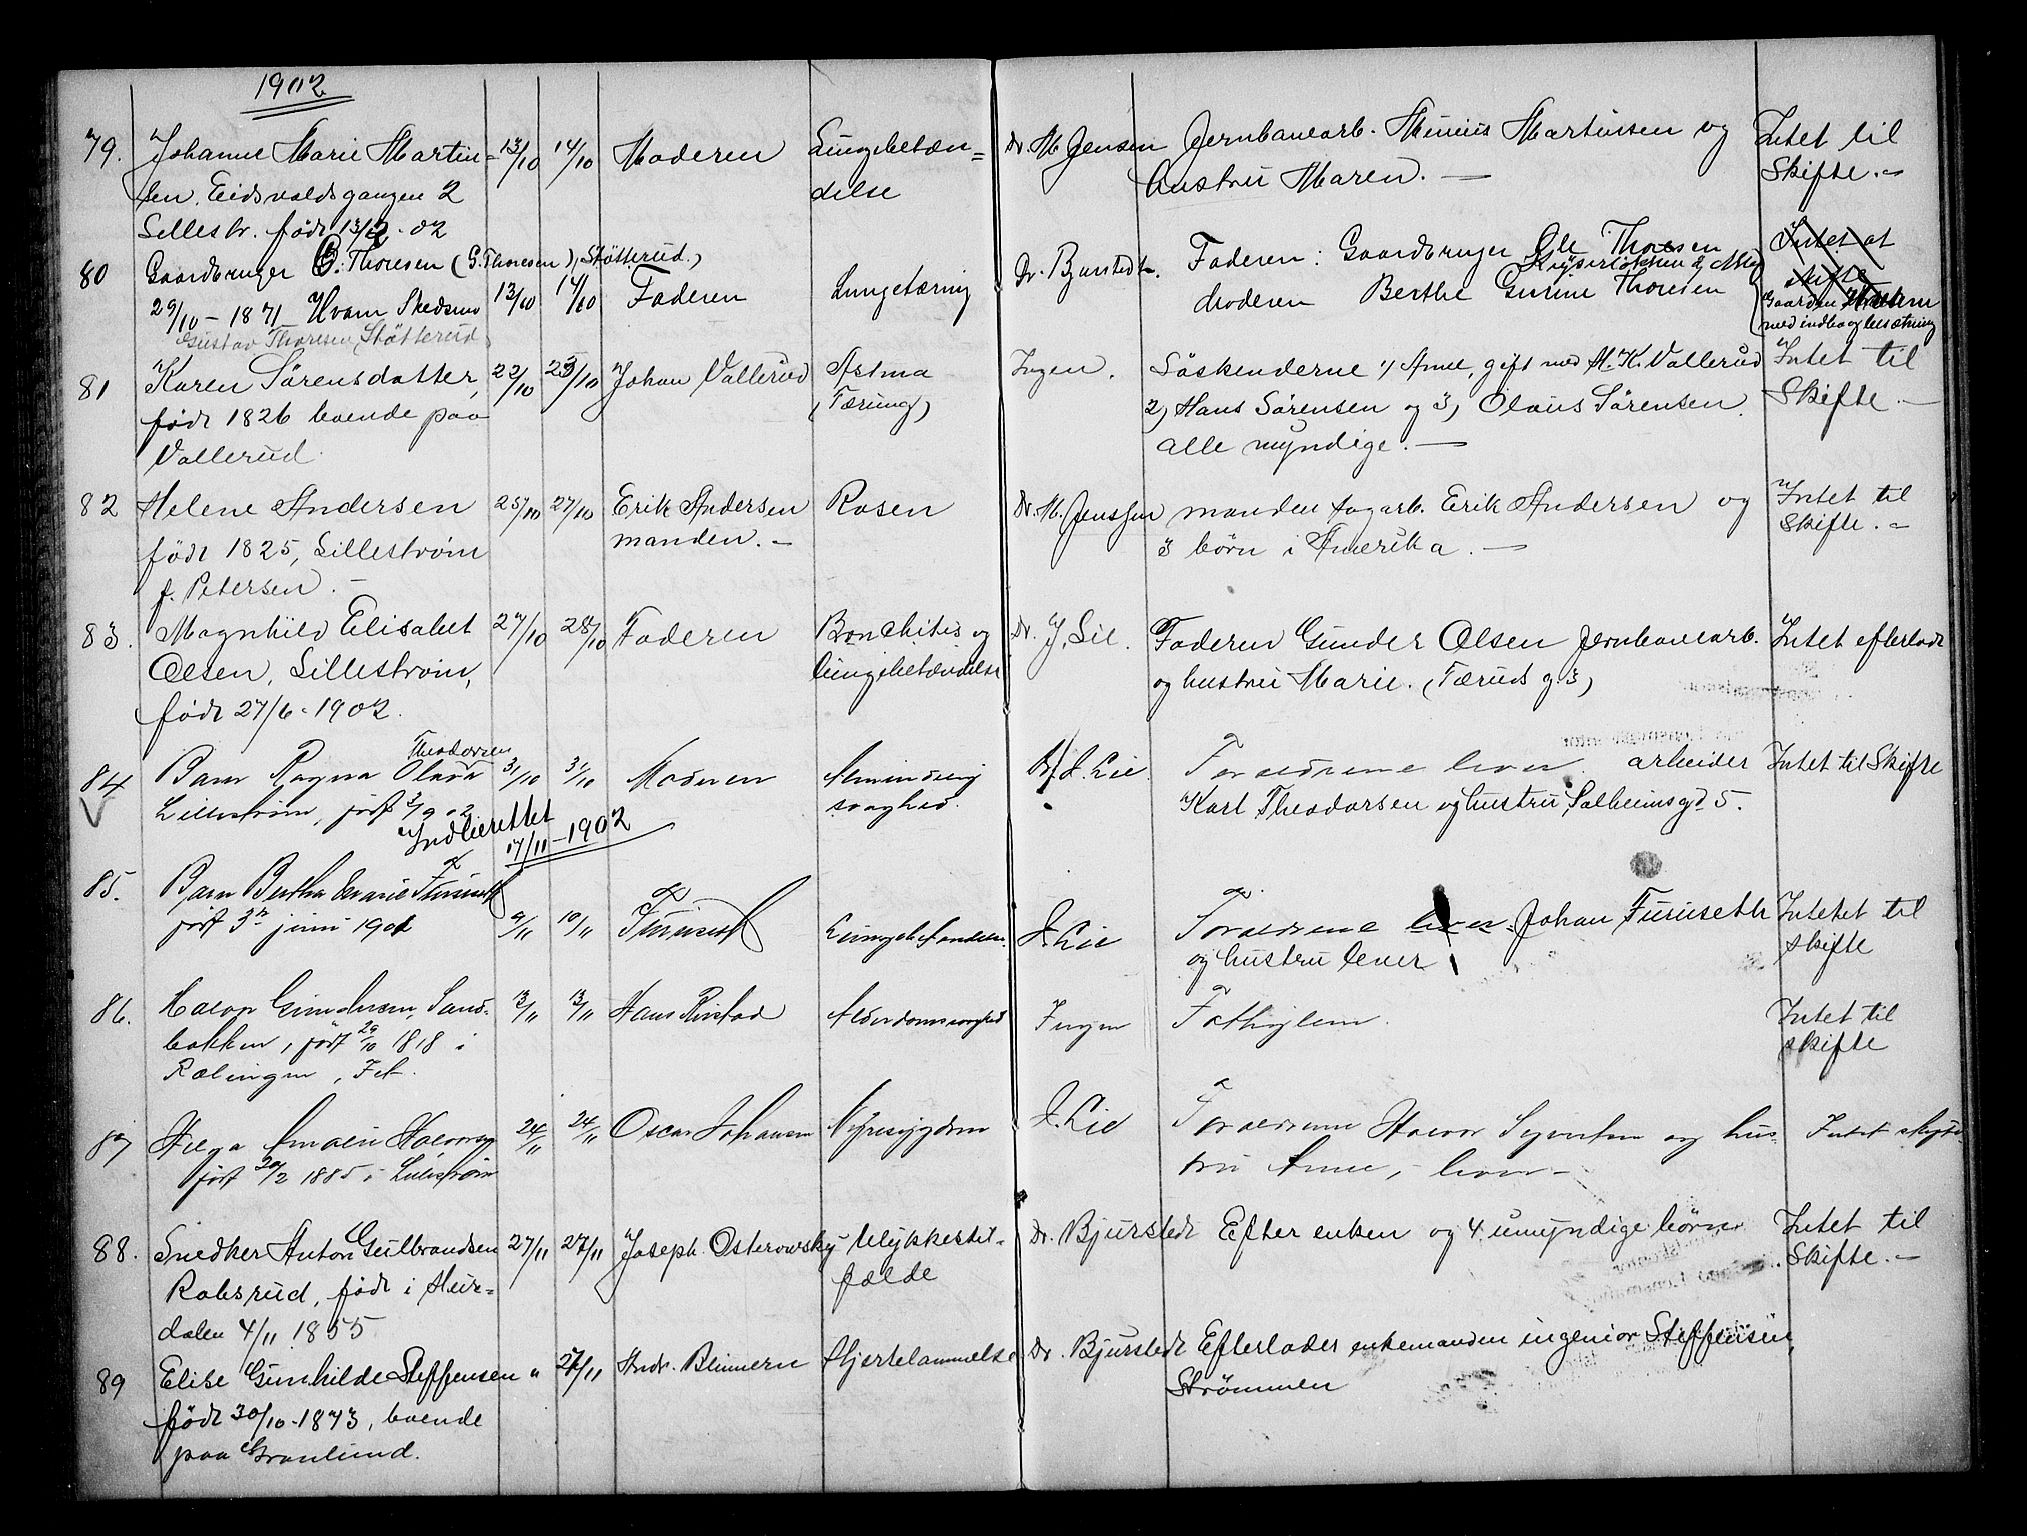 1902
79. Johanne Marie Martin= 13/10 14/10 Moderen Lungebetæn= Dr. M Jensen Jernbanearb. Martinsen og Intet til
sen, Eidsvoldsgangen 2 delse hustru Maren. — Skifte.-
Lillestr. født 13/2 - 02
80 Gaardbruger G. Thoresen (G. Thoresen), Støtterud.) 13/10 14/10 Faderen Lungetæring Dr. Bjurstedt. Faderen: Gaardbruger Ole Thoresen Intet at
29/10 - 1871 Hvam Skedsmo Moderen Berthe Thoresen skifte
Gustav Thoresen, Støtterud Gaarden
med indbo og besætning
81 Karen Sørensdatter, 22/10 25/10 Johan Vallerud Astma Ingen. Søskenderne 1) Anne, gift med M. K. Vallerud Intet til
født 1826 boende paa (Tæring) 2) Hans Sørensen og 3) Olaus Sørensen. Skifte. —
Vallerud alle myndige. —
82 Helene Andersen 25/10 27/10 Erik Andersen Rosen Dr. M. Jensen manden sagarb. Erik Andersen og Intet til
født 1825, Lillestrøm manden. - 3 børn i Amerika. — Skifte. -
f. Petersen. -
83. Magnhild Elisabet 27/10 28/10 Faderen Bronchitis og Dr. J. Lie. Faderen Gunder Olsen Jernbanearb. Intet efterladt
Olsen, Lillestrøm, lungebetændelse og hustru Marie. (Tærud g. 3)
født 27/6 - 1902.
Theodorsen
84 Barn Ragna Olava 31/10 31/10 Moderen Almindelig Dr J. Lie. Forældrene lever. arbeider Intet til Skifte
Lillestrøm, født 3/9 02 svaghed. Karl Theodorsen og hustru Solheimsgd 5.
Indberettet
17/11 - 1902
85. Barn Bertha Marie Furuseth 9/11 10/11 Furuseth Lungebetændelse. J. Lie Forældrene lever Johan Furuseth Intetet til
født 3de juni 1901 og hustru lever skifte
86. Halvor Gundersen, Sand- 13/11 13/11 Hans Rirstad Alderdomssvaghed Ingen Fattiglem. Intet til
bakken, født 29/10 1818 i skifte
Rælingen, Fet.
87 Helga Amalie Halvorsen 24/11 24/11 Oscar Johansen Nyresygdom J. Lie Forældrene Halvor Syvertsen og hus- Intet skifte
født 20/2 1885 i Lillestrøm tru Anne, - lever -
88. Snedker Anton Gulbrandsen 27/11 27/11 Joseph Osterowsky Ulykkestil- Dr. Bjurstedt Efter enken og 4 umyndige børn Intet til
Robsrud, født i Hur= fælde Skifte. -
dalen 4/11 1855
89 Elise Gunhilde Steffensen " 27/11 Andr. Blinnern Hjertelammelse Dr. Bjurstedt Efterlader enkemanden ingeniør Steffensen,
født 30/10 - 1873, boende Strømmen
paa Granlund.